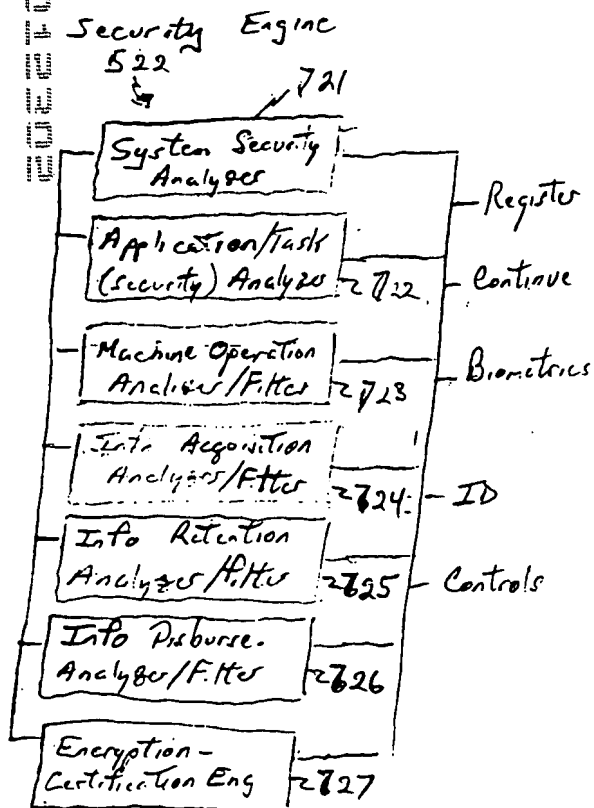 Security Engine
522
721
System Security
Analyzer
Register
Application/Task
(Security) Analyzer
722
Continue
Machine Operation
Analyzer/Filter
723
Biometrics
Info Acquisition
Analyzer/Filter
724
ID
Info Retention
Analyzer/Filter
725
Controls
Info Disburse.
Analyzer/Filter
726
Encryption-
Certification Eng
727